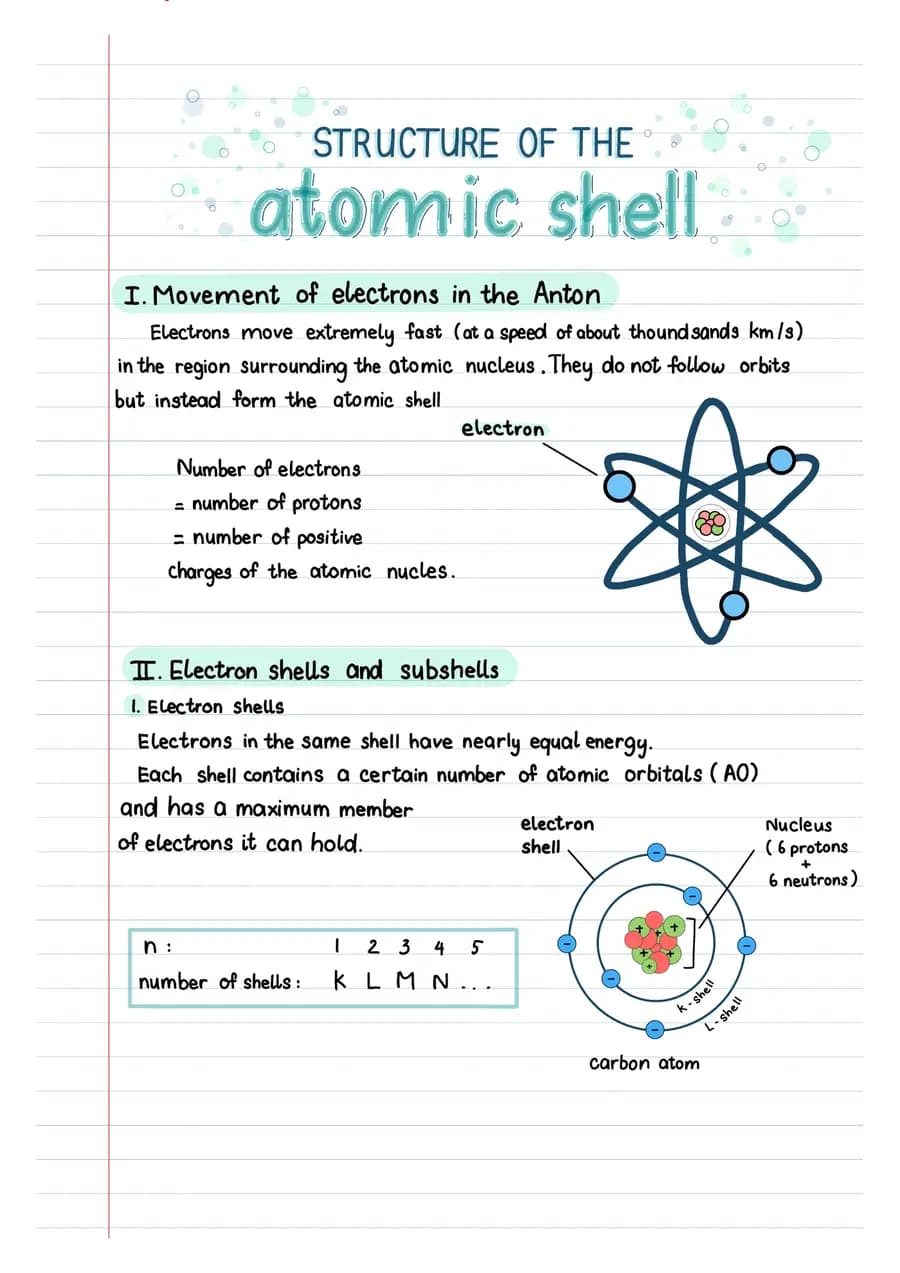 STRUCTURE OF THE
atomic shell
I. Movement of electrons in the Anton
Electrons move extremely fast (at a speed of about thoundsands km/s)
in the region surrounding the atomic nucleus. They do not follow orbits
but instead form the atomic shell
electron
Number of electrons
= number of protons
= number of positive
charges of the atomic nucles.
II. Electron shells and subshells
1. Electron shells
Electrons in the same shell have nearly equal energy.
Each shell contains a certain number of atomic orbitals (AO)
and has a maximum member
of electrons it can hold.
electron
shell
Nucleus
(6 protons
+
6 neutrons)
n: 1 2 3 4 5
number of shells: K L M N ...
K-shell
L-shell
carbon atom